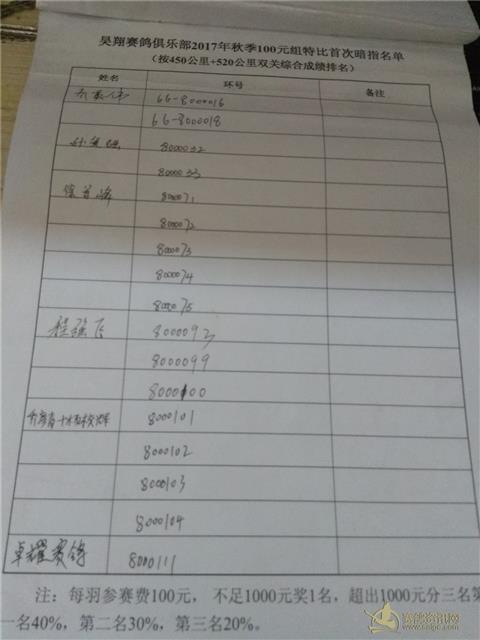 昊翔赛鸽俱乐部2017年秋季100元组特比首次暗指名单
(按450公里+520公里双关综合成绩排名)
姓名 环号 备注
66-8000016
66-8000018
8000032
8000033
8000071
8000072
8000073
8000074
8000075
程强飞 8000093
8000099
8000100
8000101
8000102
8000103
8000104
卓耀赛鸽 8000111
注：每羽参赛费100元， 不足1000元奖1名，超出1000元分三名第
一名40%，第二名30%，第三名20%。